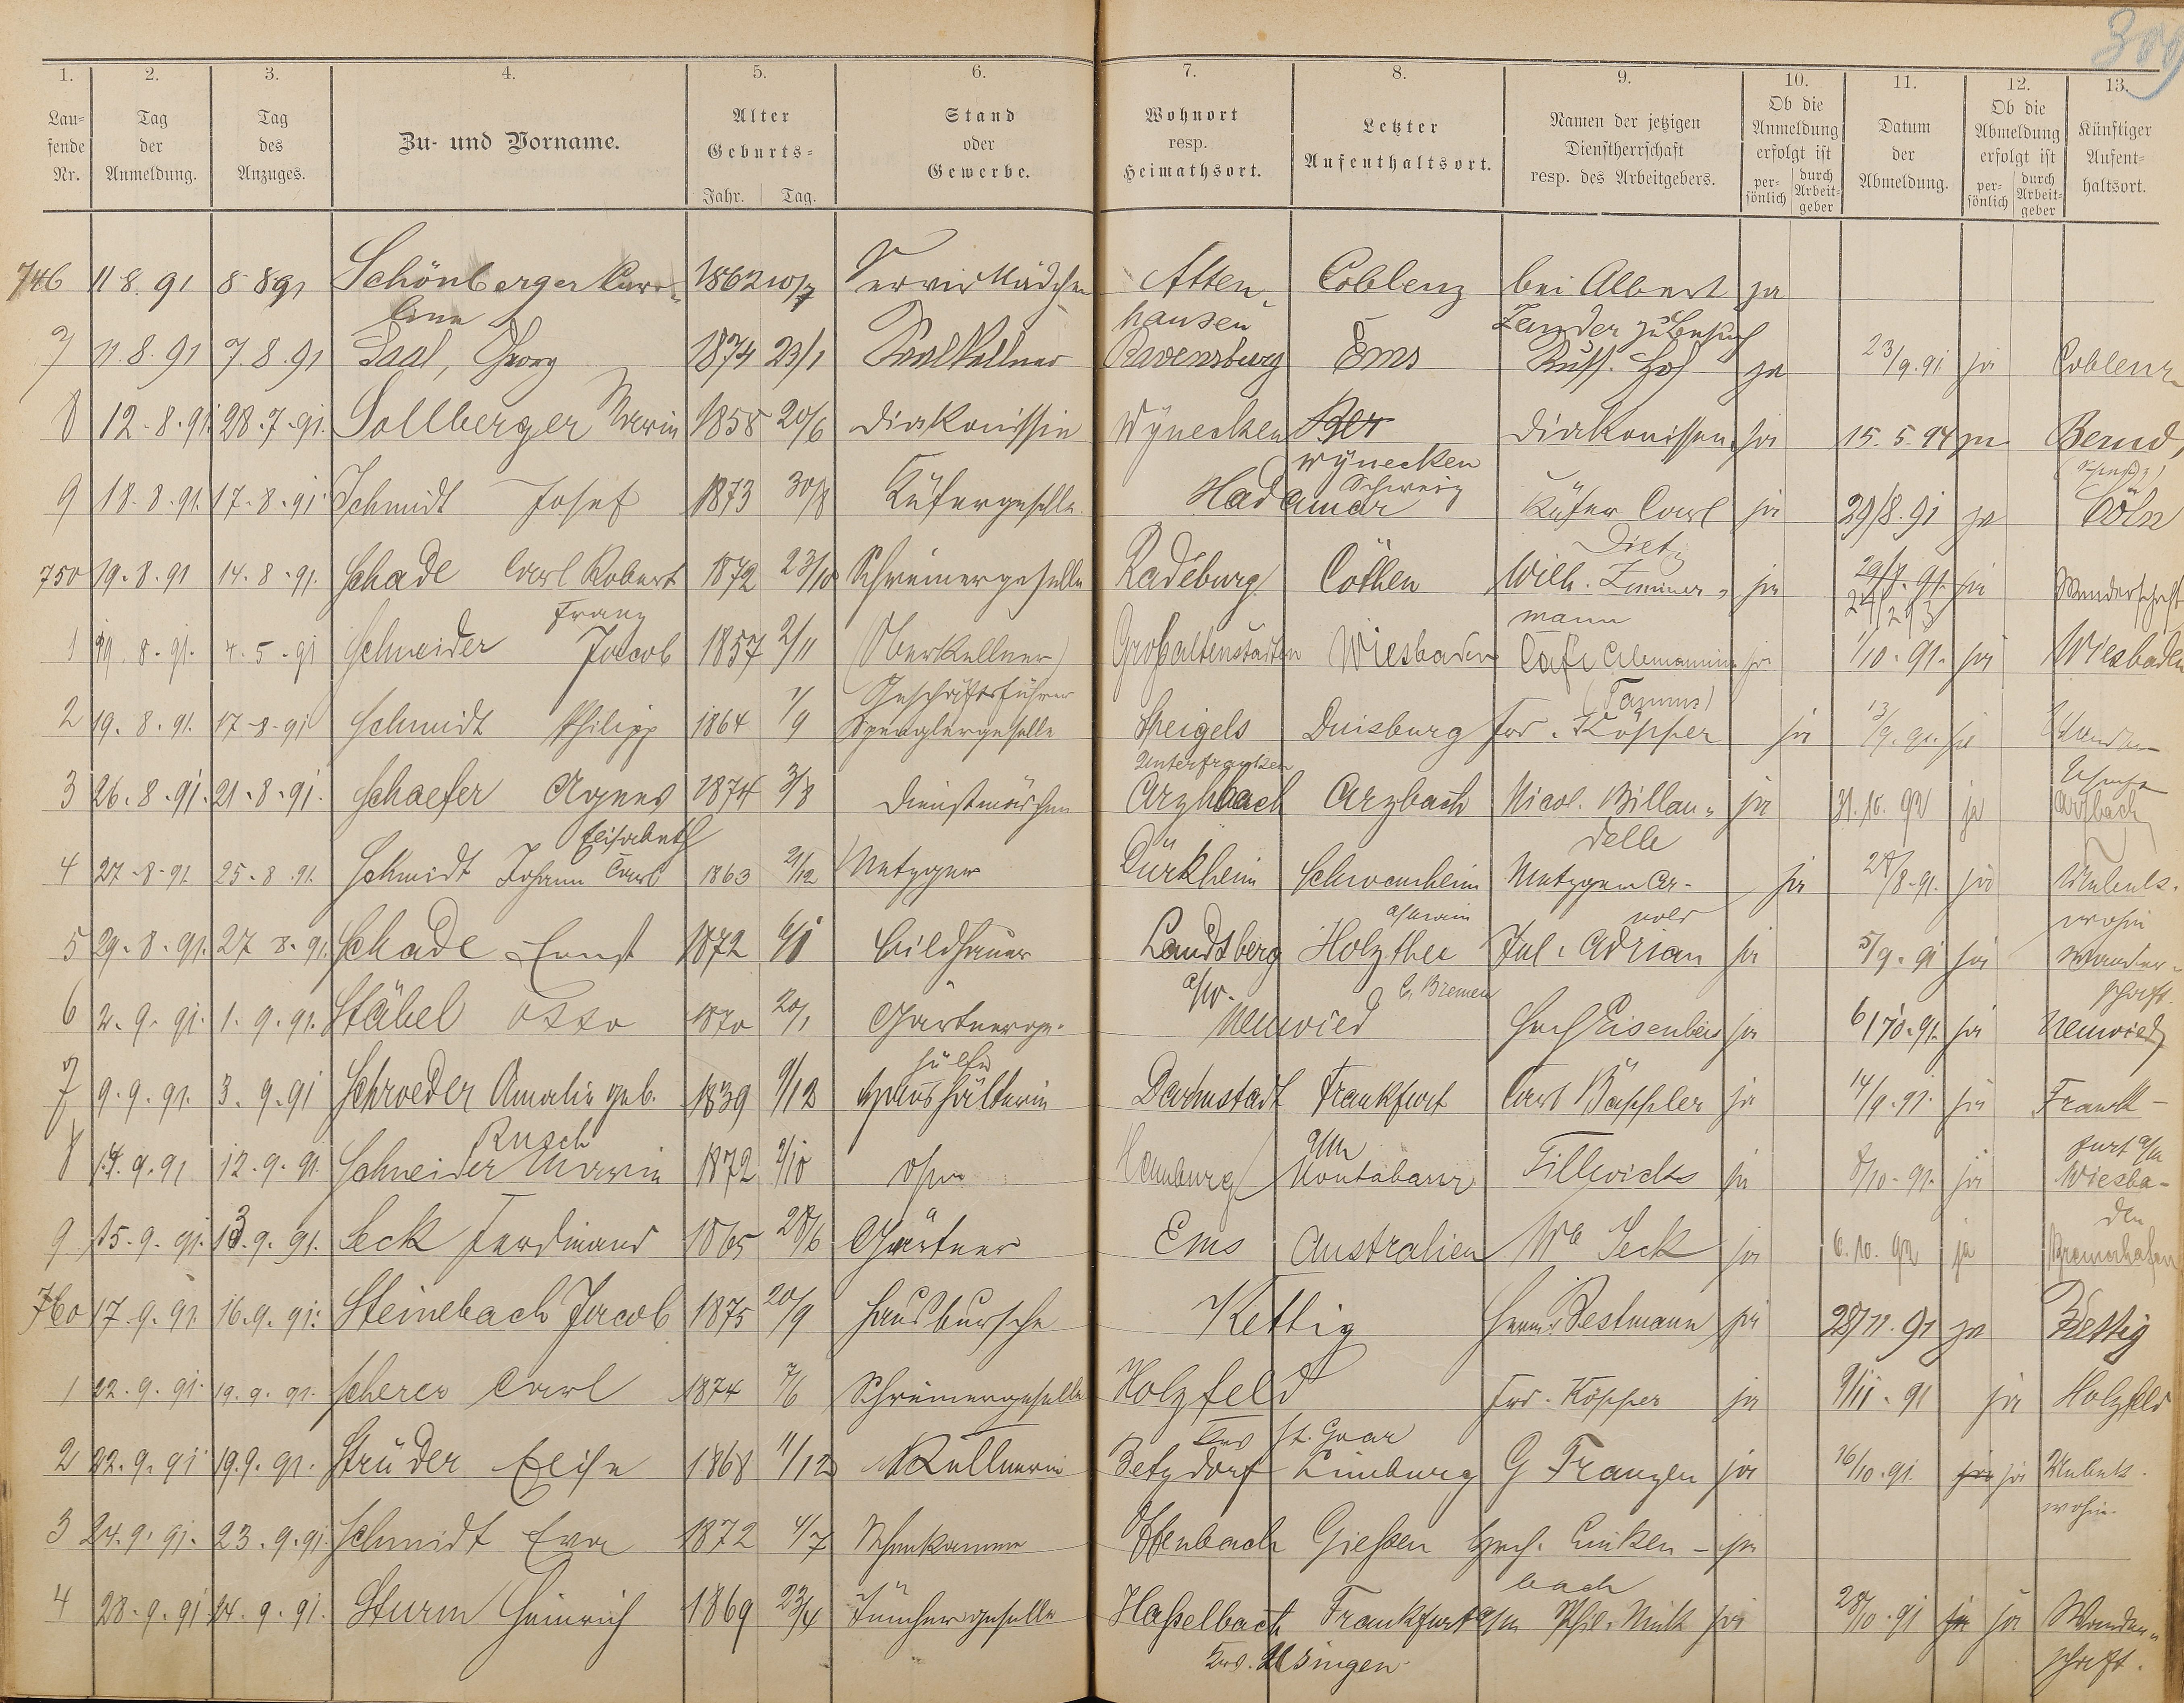 309
1. 2. 3. 4. 5. 6. 7. 8. 9. 10. 11. 12. 13.
Lau-
fende
Nr.
Tag
der
Anmeldung.
Tag
des
Anzuges.
Zu- und Vorname.
Alter
Geburts-
Jahr. Tag.
Stand
oder
Gewerbe.
Wohnort
resp.
Heimathsort.
Letzter
Aufenthaltsort.
Namen der jetzigen
Dienstherrschaft
resp. des Arbeitgebers.
Ob die
Anmeldung
erfolgt ist
per-
sönlich
durch
Arbeit-
geber
Datum
der
Abmeldung.
Ob die
Abmeldung
erfolgt ist
per-
sönlich
durch
Arbeit-
geber
Künftiger
Aufent-
haltsort.
746 11 8. 91 8 8 91 Schönberger Caro- 1862 10/7 Servir Mädchen Atten- Coblenz bei Albert ja
line hausen Zander zu Besuch
7 11. 8. 91 7. 8. 91 Saal, Georg 1874 23/1 Saalkellner Ravensburg Ems Russ. Hof ja 23/9. 91 ja Coblenz
8 12. 8. 91. 28. 7. 91. Sollberger Maria 1858 20/6 Diakonissin Wynecken Ber Diakonissen ja 15. 5. 94 ja Bernd,
wynecken Schweiz (Schweiz)
9 18. 8. 91. 17. 8. 91 Schmidt Josef 1873 30/8 Küfergeselle. Hadamar Küfer Carl ja 29/8. 91 ja Cöln
Dietz
750 19. 8. 91 14. 8. 91. Schade Carl Robert 1872 23/10 Schreinergeselle Radeburg Cöthen Wilh. Zimmer- ja 29/9. 91. ja Wanderschaft
Franz mann 24/2 93
1 19. 8. 91. 4. 5. 91 Schneider Jacob 1857 2/11 (Oberkellner) Großaltenstädten Wiesbaden Café Alemannia ja 1/10. 91. ja Wiesbaden
Geschäftsführer (Taunus)
2 19. 8. 91. 17. 8. 91 Schmidt Philipp 1864 1/9 Spenglergeselle Steigels Duisburg Frd. Köpper ja 13/9. 91. ja Wander-
Unterfranken schaft
3 26. 8. 91. 21. 8. 91. Schaefer Agnes 1874 3/8 Dienstmädchen Arzhbach Arzbach Nicol. Billau- ja 31. 10. 92 ja Arzbach
Elisabeth delle
4 27. 8. 91. 25. 8. 91. Schmidt Johann Carl 1863 21/12 Metzger Dürkheim Schwanheim Metzger Ar- ja 28/8. 91. ja Unbek.
a/Main nold wohin
5 29. 8. 91. 27 8. 91. Schade Ernst 1872 6/8 Bildhauer Landsberg Holzthee Jul. Adrian ja 5/9. 91 ja Wander-
a/W. b. Bremen schaft.
6 2. 9. 91. 1. 9. 91. Stäbel Otto 1870 20/1 Gärtnerge- Neuwied Hch Eisenbeis ja 6/10. 91. ja Neuwied
hülfe
7 9. 9. 91. 3. 9. 91 Schroeder Amalie geb. 1839 9/12 Haushälterin Darmstadt Frankfurt Carl Bäppler ja 14/9. 91. ja Frank-
Rusch a/M furt a/M
8 14. 9. 91 12. 9. 91. Schneider Maria 1872 9/10 ohne Hamburg Montabaur Fillwicks ja 8/10. 91. ja Wiesba-
den
9 15. 9. 91. 13. 9. 91. Seck Ferdinand 1865 28/6 Gärtner Ems Australien We Seck ja 6. 10. 92 ja Bremerhafen
760 17. 9. 91. 16. 9. 91. Steinebach Jacob 1875 20/9 Hausbursche Kettig Herm. Bestmann ja 28/11. 91 ja Kettig
1 22. 9. 91. 19. 9. 91. Scherer Carl 1874 7/6 Schreinergeselle Holzfeld Frd. Köpper ja 9/11. 91 ja Holzfeld
Krs St. Goar
2 22. 9. 91 19. 9. 91. Strüder Elise 1868 11/12 Kellnerin Betzdorf Limburg G Franzen ja 16/10. 91. ja ja Unbek.
wohin.
3 24. 9. 91. 23. 9. 91. Schmidt Eva 1872 4/7 Schenkamme Offenbach Gießen Hch. Linken- ja
bach
4 28. 9. 91 24. 9. 91. Sturm Heinrich 1869 23/4 Tünchergeselle Haßelbach Frankfurt a/M Phil. Mink ja 28/10. 91 ja ja Wander-
Krs. Usingen schaft.